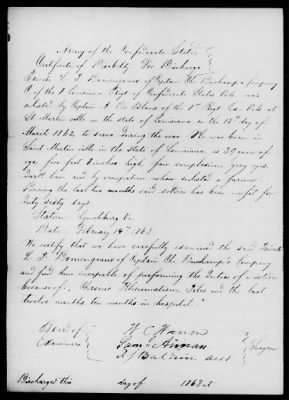 Army of the Confederate States
Certificate of Disability for Discharge
Private L. F. Domengeaux of Captain Ch. Duchamp's Company
C of the 8 Louisiana Regt of Confederate States Vols was
enlisted by Captain A. of the 8th Regt La. Vols at
St. Martin ville in the state of Louisiana on the 15th day of
March 1862 to serve during the war. He was born in
Saint Martin ville in the state of Louisiana, is 30 years of
age, five feet inches high, fair complexion, gray eyes,
hair and by occupation when enlisted a farmer.
During the last two months said soldier has been unfit for
duty sixty days.
Station Lynchburg Va.
Date February 14th 1863
We certify that we have carefully examined the said Private
L. F. Domengeaux of Captain Ch. Duchamp's Company
and find him incapable of performing the duties of a soldier
because of Chronic Rheumatism, Piles and the last
twelve months ten months in hospital."
Board of
Examiners
Surgeon
Discharged this day of 1863